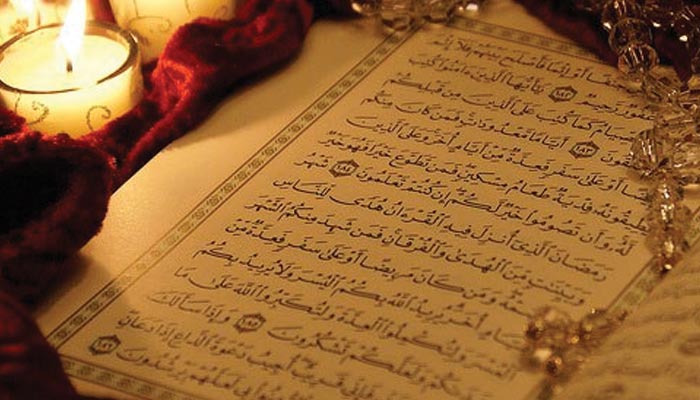 أَوْ إِثْمًا فَأَصْلَحَ بَيْنَهُمْ فَلَآ إِثْمَ
غَفُورٌ رَّحِيمٌ ١٨٢ يَٰٓأَيُّهَا ٱلَّذِينَ ءَامَنُوا۟ كُتِبَ
ٱلصِّيَامُ كَمَا كُتِبَ عَلَى ٱلَّذِينَ مِن قَبْلِكُمْ
١٨٣ أَيَّامًا مَّعْدُودَٰتٍ فَمَن كَانَ مِنكُم
أَوْ عَلَىٰ سَفَرٍ فَعِدَّةٌ مِّنْ أَيَّامٍ أُخَرَ وَعَلَى ٱلَّذِينَ
يُطِيقُونَهُۥ فِدْيَةٌ طَعَامُ مِسْكِينٍ فَمَن تَطَوَّعَ خَيْرًا فَهُوَ خَيْرٌ
لَّهُۥ وَأَن تَصُومُوا۟ خَيْرٌ لَّكُمْ إِن كُنتُمْ تَعْلَمُونَ ١٨٤ شَهْرُ
رَمَضَانَ ٱلَّذِىٓ أُنزِلَ فِيهِ ٱلْقُرْءَانُ هُدًى لِّلنَّاسِ
وَبَيِّنَٰتٍ مِّنَ ٱلْهُدَىٰ وَٱلْفُرْقَانِ فَمَن شَهِدَ مِنكُمُ ٱلشَّهْرَ
وَمَن كَانَ مَرِيضًا أَوْ عَلَىٰ سَفَرٍ فَعِدَّةٌ مِّنْ
أُخَرَ يُرِيدُ ٱللَّهُ بِكُمُ ٱلْيُسْرَ وَلَا يُرِيدُ بِكُمُ
ٱلْعُسْرَ وَلِتُكْمِلُوا۟ ٱلْعِدَّةَ وَلِتُكَبِّرُوا۟ ٱللَّهَ عَلَىٰ مَا
وَلَعَلَّكُمْ تَشْكُرُونَ ١٨٥ وَإِذَا سَأَلَكَ
فَإِنِّى قَرِيبٌ أُجِيبُ دَعْوَةَ ٱلدَّاعِ إِذَا دَعَانِ
بِى لَعَلَّهُمْ يَرْشُدُونَ ١٨٦